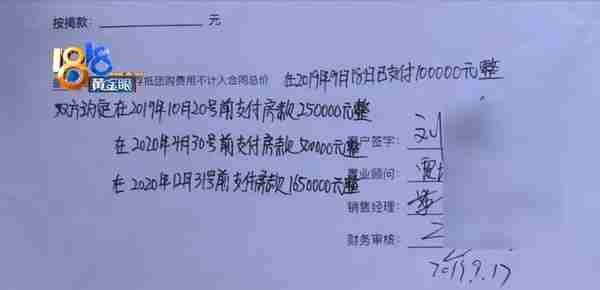 按揭款: 元
1818
黄金眼 抵团购费用不计入合同总价 在2019年9月18日已支付100000元整
双方约定在2019年10月20号前支付房款250000元整
在2020年4月30号前支付房款500000元整
客户签字: 刘
在2020年12月31号前支付房款1650000元整
置业顾问:
销售经理: 李
财务审核:
2019.9.17